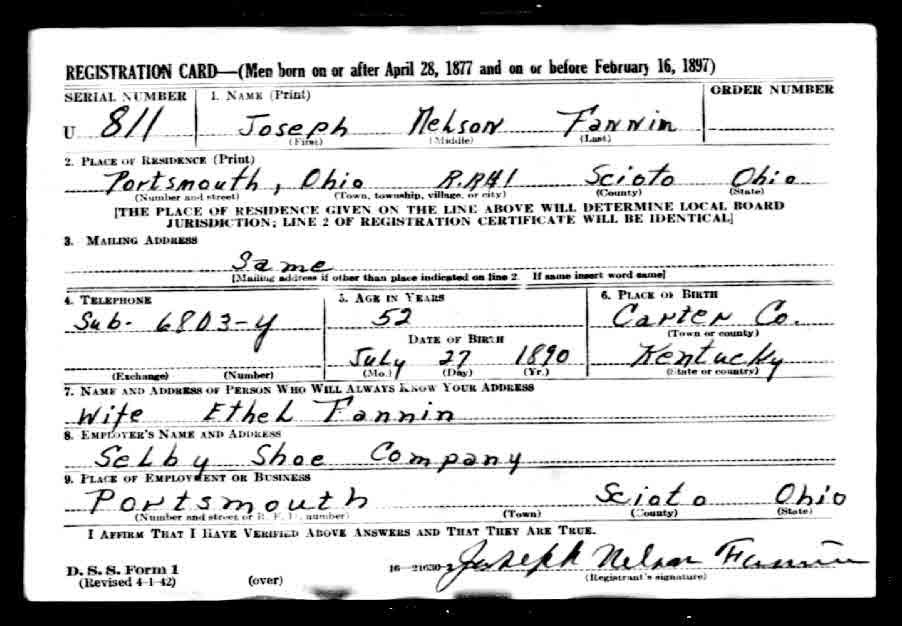 REGISTRATION CARD—(Men born on or after April 28, 1877 and on or before February 16, 1897)
SERIAL NUMBER 1. NAME (Print) ORDER NUMBER
U 811 Joseph Nelson Fannin
(First) (Middle) (Last)
2. PLACE OF RESIDENCE (Print)
Portsmouth, Ohio R.R#1 Scioto Ohio
(Number and street) (Town, township, village, or city) (County) (State)
[THE PLACE OF RESIDENCE GIVEN ON THE LINE ABOVE WILL DETERMINE LOCAL BOARD
JURISDICTION; LINE 2 OF REGISTRATION CERTIFICATE WILL BE IDENTICAL]
3. MAILING ADDRESS
Same
[Mailing address if other than place indicated on line 2 If same insert word same]
4. TELEPHONE 5. AGE IN YEARS 6. PLACE OF BIRTH
Sub- 6803-Y 52 Carter Co.
DATE OF BIRTH (Town or county)
July 27 1890 Kentucky
(Exchange) (Number) (Mo.) (Day) (Yr.) (State or country)
7. NAME AND ADDRESS OF PERSON WHO WILL ALWAYS KNOW YOUR ADDRESS
Wife Ethel Fannin
8. EMPLOYER'S NAME AND ADDRESS
Selby Shoe Company
9. PLACE OF EMPLOYMENT OR BUSINESS
Portsmouth Scioto Ohio
(Number and street or R. F. D. number) (Town) (County) (State)
I AFFIRM THAT I HAVE VERIFIED ABOVE ANSWERS AND THAT THEY ARE TRUE.
Joseph Nelson Fannin
D. S. S. Form 1 16—21630-2 (Registrant's signature)
(Revised 4-1-42) (over)